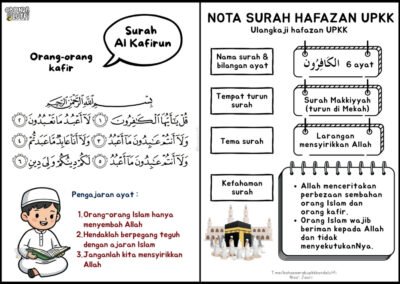 Surah
Al Kafirun
Orang-orang
kafir
بِسْمِ اللَّهِ الرَّحْمَنِ الرَّحِيمِ
قُلْ يَا أَيُّهَا الْكَافِرُونَ ١ لَا أَعْبُدُ مَا تَعْبُدُونَ ٢
وَلَا أَنتُمْ عَابِدُونَ مَا أَعْبُدُ ٣ وَلَا أَنَا عَابِدٌ مَّا عَبَدتُّمْ ٤
وَلَا أَنتُمْ عَابِدُونَ مَا أَعْبُدُ ٥ لَكُمْ دِينُكُمْ وَلِيَ دِينِ ٦
Pengajaran ayat :
1.Orang-orang Islam hanya
menyembah Allah
2.Hendaklah berpegang teguh
dengan ajaran Islam
3.Janganlah kita mensyirikkan
Allah
NOTA SURAH HAFAZAN UPKK
Ulangkaji hafazan UPKK
Nama surah &
bilangan ayat
الْكَافِرُونَ 6 ayat
Tempat turun
surah
Surah Makkiyyah
(turun di Mekah)
Tema surah
Larangan
mensyirikkan Allah
Kefahaman
surah
• Allah menceritakan
perbezaan sembahan
orang Islam dan
orang kafir.
• Orang Islam wajib
beriman kepada Allah
dan tidak
menyekutukanNya.